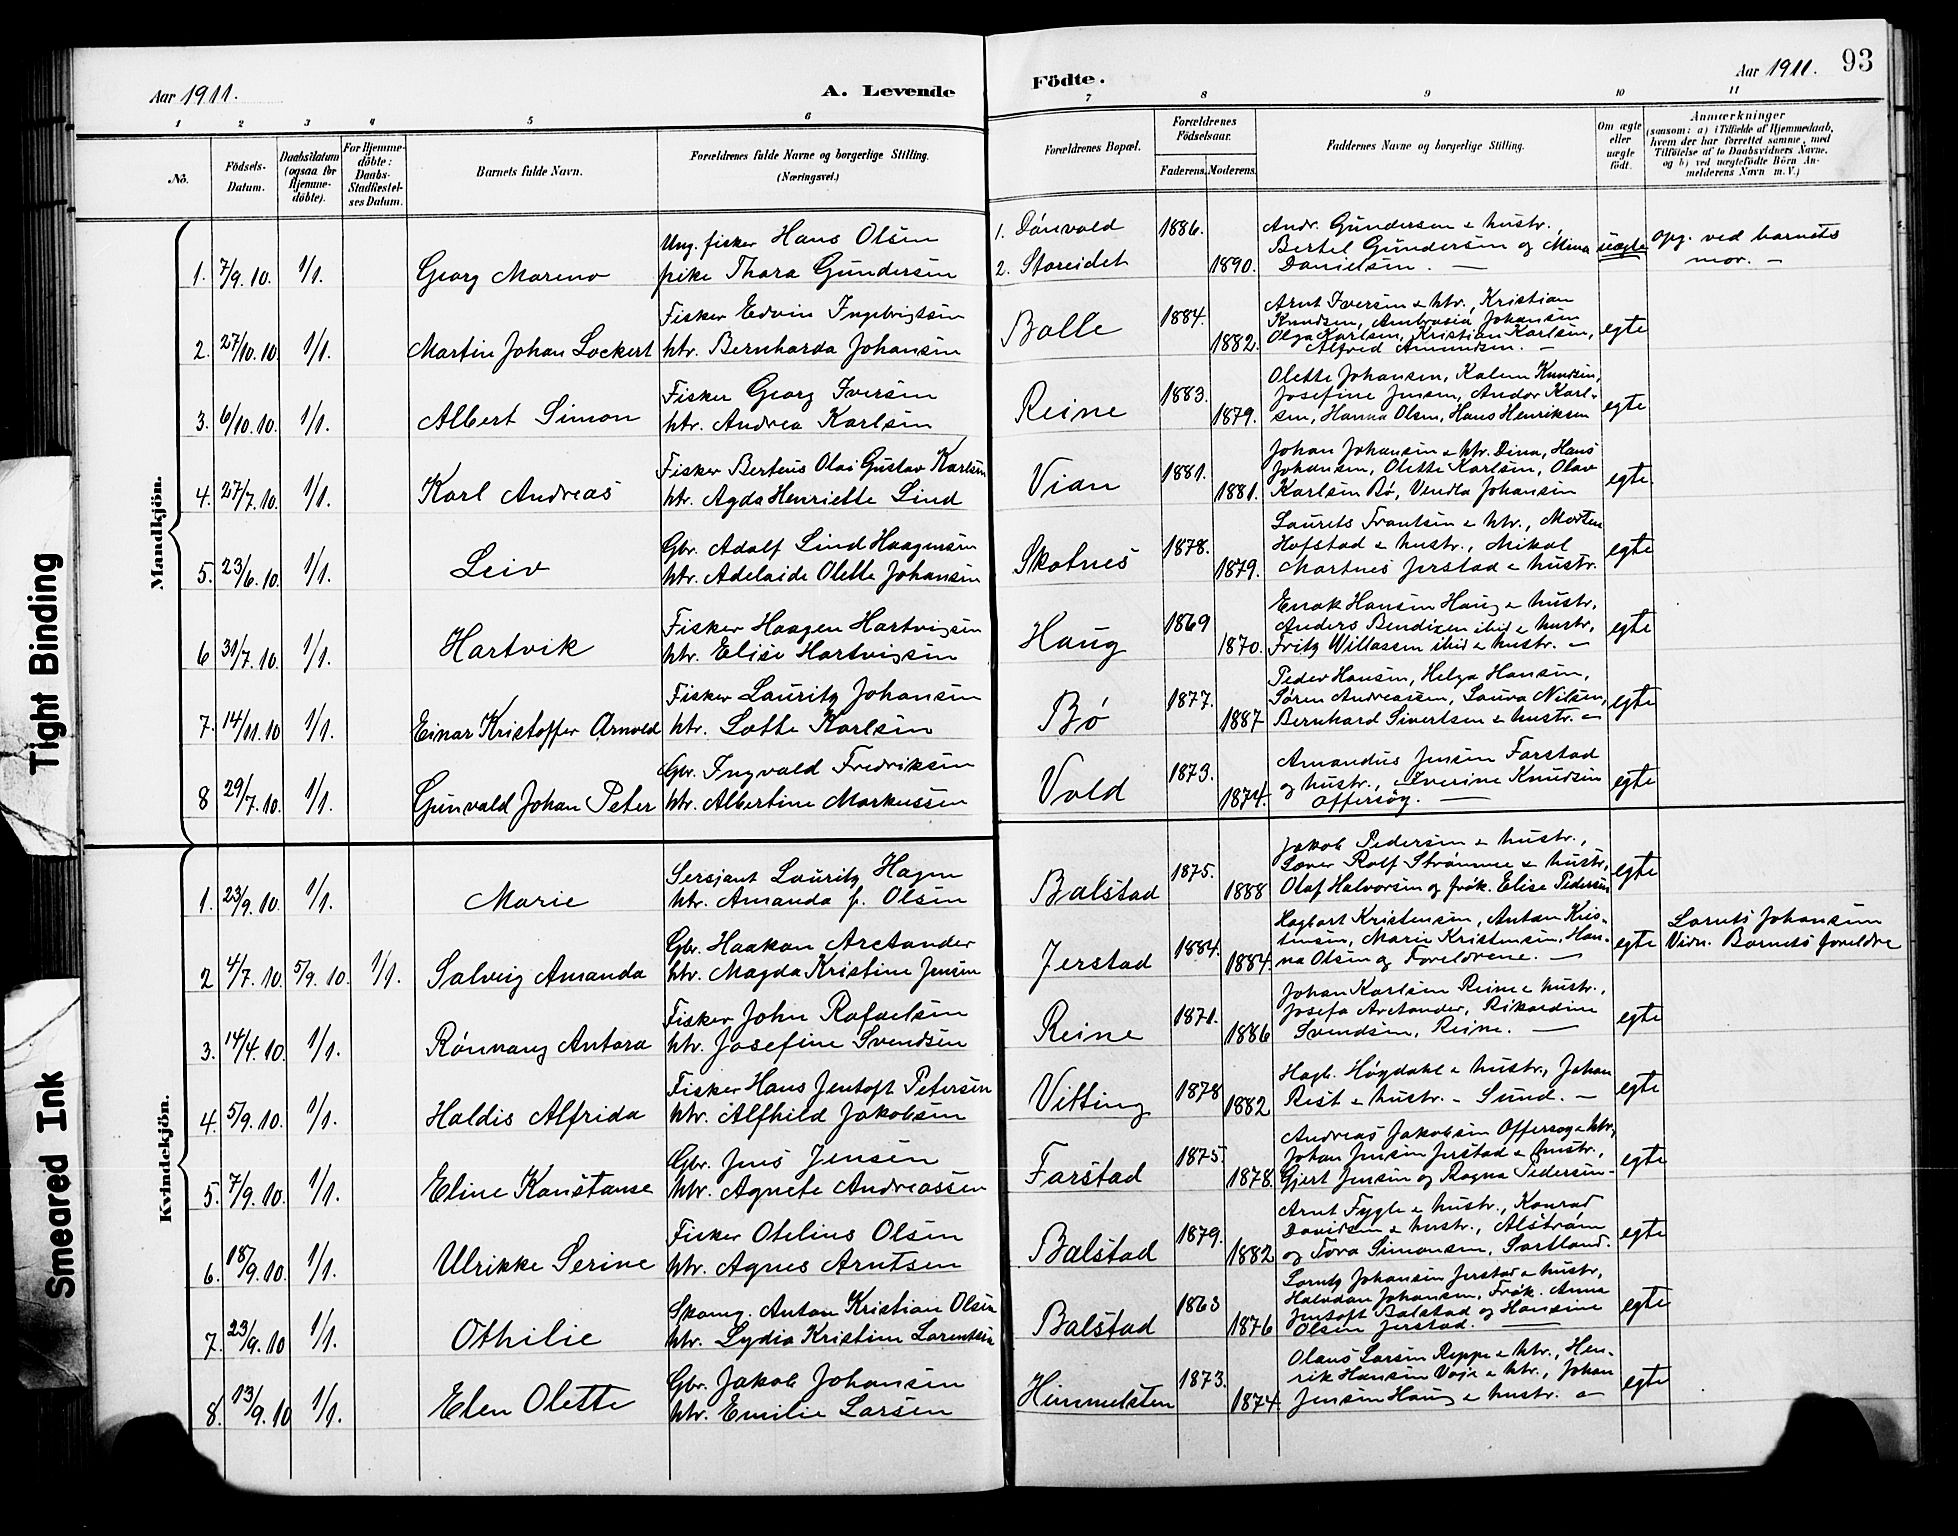 Aar 1911.
A. Levende
Födte.
Aar 1911.
93
1 2 3 4 5 6 7 8 9 10 11
No.
Födsels-Datum.
Daabsdatum (ogsaa for Hjemmedöbte).
For Hjemmedöbte: Daabs-Stadfestelses Datum.
Barnets fulde Navn.
Forældrenes fulde Navne og borgerlige Stilling. (Næringsvei.)
Forældrenes Bopæl.
Forældrenes Födselsaar.
Faderens. Moderens.
Faddernes Navne og borgerlige Stilling.
Om ægte eller uægte födt.
Anmærkninger (saasom: a) i Tilfælde af Hjemmedaab, hvem der har forrettet samme, med Tilföielse af to Daabsvidners Navne, og b) ved uægtefödte Börn Anmelderens Navn m. V.)
Mandkjön.
1. 7/9. 10. 1/1. Georg Moreno
Ung. fisker Hans Olsen
pike Thora Gundersen
1. Dönvold
2. Storeidet
1886. 1890.
Andr. Gundersen & hustr.,
Bertel Gundersen og Mina
Danielsen. —
uægte
opg. ved barnets
mor. —
2. 27/10. 10. 1/1. Martin Johan Lockert
Fisker Edvin Ingebrigtsen
htr. Bernharda Johansen
Balle
1884. 1882.
Arnt Iversen & htr., Kristian
Knudsen, Ambrosia Johansen
Olga Karlsen, Kristian Karlsen,
Alfred Amundsen. —
egte
3. 6/10. 10. 1/1. Albert Simon
Fisker Georg Iversen
htr. Andrea Karlsen
Reine
1883. 1879.
Olette Johansen, Kalem Knudsen,
Josefine Jensen, Andor Karl-
sen, Hanna Olsen, Hans Henriksen
egte
4. 27/7. 10. 1/1. Karl Andreas
Fisker Berteus Olai Gustav Karlsen
htr. Agda Henriette Lind
Vian
1881. 1881.
Johan Johansen & htr. Dina, Hans
Johansen, Olette Karlsen, Olav
Karlsen Bø, Vendla Johansen
egte.
5. 23/6. 10. 1/1. Leiv
Gbr. Adolf Lind Haagensen
htr. Adelaide Olette Johansen
Skotnes
1878. 1879.
Laurits Frantsen & htr., Morten
Hofstad & hustr., Mikal
Martnes Jerstad & hustr.
egte
6 31/7. 10. 1/1. Hartvik
Fisker Haagen Hartvigsen
htr. Elise Hartvigsen
Haug
1869 1870.
Enok Hansen Haug & hustr.
Anders Bendixen ibid & hustr,
Fritz Willassen ibid & hustr. —
egte
7. 14/11. 10 1/1. Einar Kristoffer Arnold
Fisker Lauritz Johansen
htr. Lotte Karlsen
Bø
1877. 1887
Peder Hansen, Helga Hansen,
Søren Andreassen, Laura Nilsen,
Bernhard Sivertsen & hustr. —
egte
8 29/7. 10. 1/1. Gunvald Johan Peter
Gbr. Ingvald Fredriksen
htr. Albertine Markussen
Vold
1873. 1874.
Amandus Jensen Farstad
og hustr., Iverine Knudsen
Offersøg. —
egte
Kvindekjön.
1. 23/9. 10. 1/1. Marie
Sersjant Lauritz Hagen
htr. Amanda f. Olsen
Balstad
1875. 1888
Jakob Pedersen & hustr.,
Lærer Rolf Strømme & hustr,
Olaf Halvorsen og frøk. Elise Pedersen
egte
2 4/7. 10. 5/9. 10. 1/1. Solveig Amanda
Gbr. Haakon Arctander
htr. Magda Kristine Jensen
Jerstad
1884. 1884.
Hagbart Kristensen, Anton Kris-
tensen, Marie Kristensen, Han-
na Olsen og Foreldrene. —
egte
Lornts Johansen
Vidn. Barnets foreldre
3. 14/4. 10. 1/1. Rønnaug Antora
Fisker John Rafaelsen
htr. Josefine Svendsen
Reine
1871. 1886
Johan Karlsen Reine & hustr.,
Josefa Arctander, Rikardine
Svendsen, Reine. —
egte
4. 5/9. 10. 1/1. Haldis Alfrida
Fisker Hans Jentoft Petersen
htr. Alfhild Jakobsen
Vitting
1878 1882
Hagb. Høgdahl & hustr., Johan
Rist & hustr. — Sund. —
egte
5. 7/9. 10. 1/1. Eline Konstanse
Gbr. Jens Jensen
htr. Agnete Andreassen
Farstad
1875. 1878.
Andreas Jakobsen Offersøg & htr,
Johan Jensen Jerstad & hustr.,
Gjert Jensen og Ragna Pedersen.
egte
6. 18/9. 10. 1/1. Ulrikke Serine
Fisker Otelius Olsen
htr. Agnes Arntsen
Balstad
1879. 1882
Arnt Fygle & hustr., Konrad
Davidsen & hustr., Alstrøm
og Tora Simonsen, Sortland.
egte
7. 23/9. 10 1/1. Othilie
Skomg. Anton Kristian Olsen
htr. Lydia Kristine Lorentsen
Balstad
1863 1876
Lorntz Johansen Jerstad & hustr,
Halvdan Johansen, Frøk. Anna
Jentoft Balstad og Hansine
Olsen Jerstad. —
egte
8. 13/9. 10 1/1. Elen Olette
Gbr. Jakob Johansen
htr. Emilie Larsen
Himmelsten
1873. 1874.
Olaus Larsen Reppe & htr., Hen-
rik Hansen Voje & htr., Johan
Jensen Haug & hustr. —
egte
Tight Binding
Smeared Ink